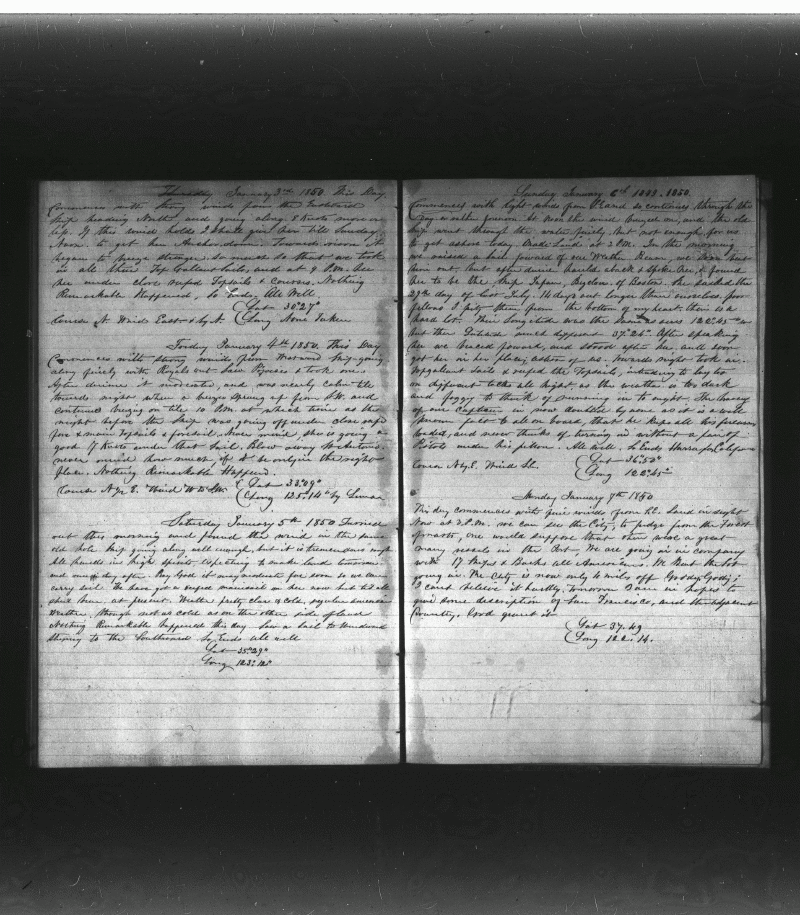 Thursday January 3rd 1850 This Day
Commences with strong winds from the Eastward
Ship heading North, and going along 8 Knots more or
less. If this wind holds 2 Shots give her till Sunday
Noon to get her Anchor down. Towards noon it
began to breeze stronger, so much so that we took
in all three Top Gallant sails, and at 8 P.M. her
under close reefed Topsails & Courses. Nothing
Remarkable Happened, So Ends, All Well
Lat 30°27"
Course N. Wind East & by N. Long None Taken
Friday January 4th 1850. This Day
Commences with strong winds from Westward Ship going
along finely with Royals out. Saw & took one
After dinner it moderated, and was nearly calm till
towards night when a breeze sprung up from SW. and
continued breezing on till 10 P.M. at which time as the
night before the Ship was going off under close reefed
fore & main Topsails & foresail. never mind she is going a
good 7 Knots under that Sail. Blow away St Antonio.
never mind how much of it be only in the right
place. Nothing Remarkable Happend.
Course N by E. Wind W to SW. Lat 33°09"
Long 125°14" by Lunar
Saturday January 5th 1850 Turned
out this morning and found the wind in the same
old hole Ship going along well enough, but it is tremendous rough
All hands in high spirits expecting to make land tomorrow
and one day after. Pray God it may moderate fore soon so we can
carry sail. We have got a reefed mainsail on her now but
at present. Weather pretty clear & cold, regular
Weather, though not as cold as on the other side of land
Nothing Remarkable happened this day Saw a sail to Windward
steering to the Southward So Ends All well
Lat 35°29"
Long 123°12"
Sunday January 6th 1850.
Commences with light winds from and so continues through the
day or rather forenoon. At Noon the wind breezed on, and the old
ship went through the water finely, but not enough for us
to get ashore today. Made Land at 2 P.M. In the morning
we raised a sail forward of our Weather Beam, we
out, but after dinner hauled aback & spoke her, & found
her to be the Ship Japan, Bigelow of Boston. She sailed the
27th day of last July. 14 days out longer than ourselves, poor
fellows I pity them from the bottom of my heart. theirs is a
hard lot. Their Longitude was the same as ours 122°45"
but their Latitude much differed 37°26". After speaking
her we braced forward, and stood after her, and soon
got her in her place, astern of us. Towards night took in
Topgallant Sails & reefed the Topsails, intending to lay too
on different tacks all night, as the weather is too dark
and foggy to think of running in to night. The
of our Captain is now doubted by none as it is a well
known fact to all on board, that he keeps all his firearms
loaded, and never thinks of turning in without a pair of
Pistols under his pillow. All well. So Ends
Lat 36°50"
Course N by E. Wind SE. Long 122°45"
Monday January 7th 1850
This day commences with fine winds from SE. Land in sight
Now at 2 P.M. we can see the City, to judge from the Forest
of masts, one would suppose that there were a great
many vessels in the Port, We are going in in company
with 17 Ships & Barks all Americans.
going in. The City is now only 4 miles off Goody Goody;
I cant believe it hardly, tomorrow Dawn we hopes to
give some description of San Francisco, and the adjacent
Country.
Lat 37.49
Long 122.14.